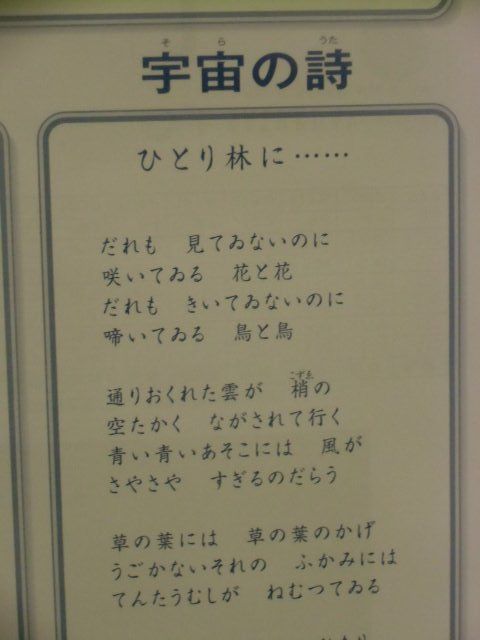 宇宙の詩
ひとり林に……
だれも 見てゐないのに
咲いてゐる 花と花
だれも きいてゐないのに
啼いてゐる 鳥と鳥
通りおくれた雲が 梢の
空たかく ながされて行く
青い青いあそこには 風が
さやさや すぎるのだらう
草の葉には 草の葉のかげ
うごかないそれの ふかみには
てんたうむしが ねむつてゐる